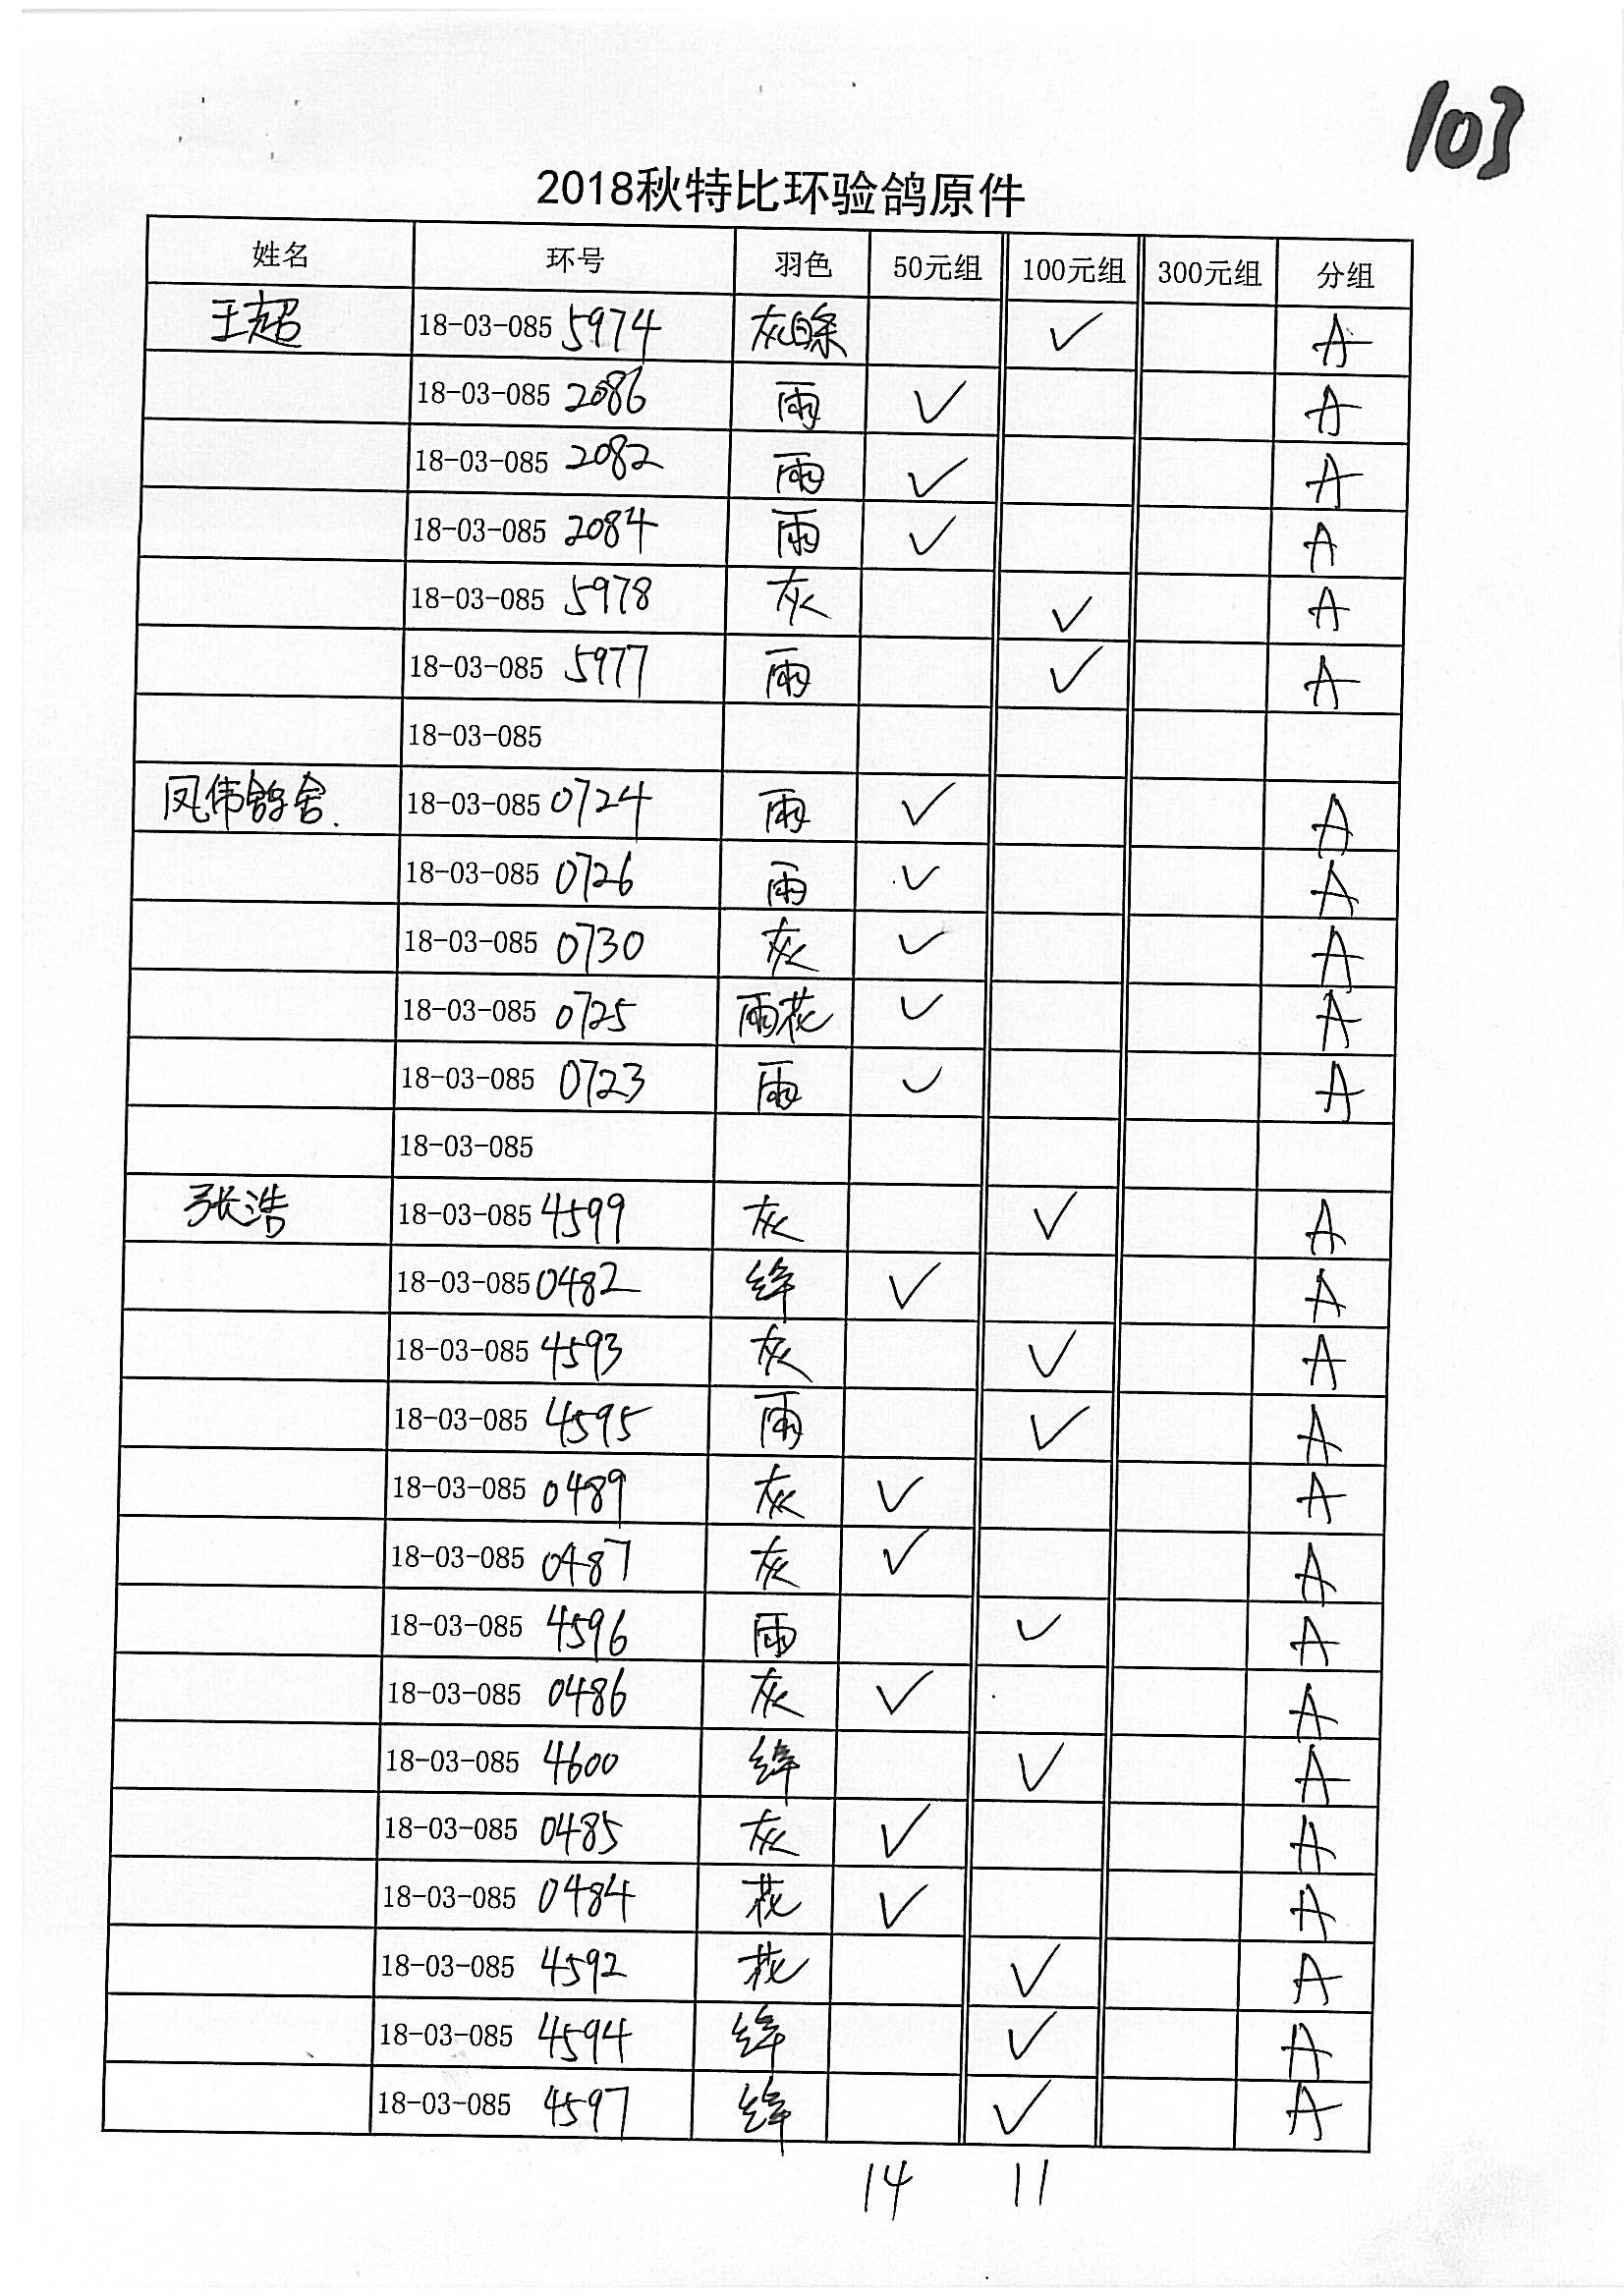 103
2018秋特比环验鸽原件
姓名 环号 羽色 50元组 100元组 300元组 分组
王超 18-03-085 5974 灰白条 ✓ A
18-03-085 2086 雨 ✓ A
18-03-085 2082 雨 ✓ A
18-03-085 2084 雨 ✓ A
18-03-085 5978 灰 ✓ A
18-03-085 5977 雨 ✓ A
18-03-085
凤伟鸽舍. 18-03-085 0724 雨 ✓ A
18-03-085 0726 雨 ✓ A
18-03-085 0730 灰 ✓ A
18-03-085 0725 雨花 ✓ A
18-03-085 0723 雨 ✓ A
18-03-085
张浩 18-03-085 4599 灰 ✓ A
18-03-085 0482 绛 ✓ A
18-03-085 4593 灰 ✓ A
18-03-085 4595 雨 ✓ A
18-03-085 0489 灰 ✓ A
18-03-085 0487 灰 ✓ A
18-03-085 4596 雨 ✓ A
18-03-085 0486 灰 ✓ A
18-03-085 4600 绛 ✓ A
18-03-085 0485 灰 ✓ A
18-03-085 0484 花 ✓ A
18-03-085 4592 花 ✓ A
18-03-085 4594 绛 ✓ A
18-03-085 4597 绛 ✓ A
14 11